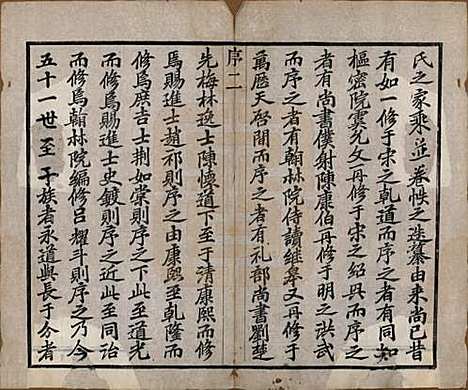 氏之家乘並卷帙之迭纂由来尚已昔
有如一修于宋之乾道而序之者有同知
樞密院雲允文再修于宋之紹興而序之
者有尚書僕射陳康伯再修于明之洪武
而序之者有翰林院侍讀継皋又再修于
萬歷天啓間而序之者有礼部尚書劉楚
序二
先梅林逸士陳懷道下至于清康熙而修
焉賜進士趙祁則序之由康熙至乾隆而
修焉庶吉士荆如棠則序之此至道光
而修焉賜進士史鍍則序之近此至同治
而修焉翰林院編修吕耀斗則序之乃今
五十一世至于族者永道與長于分者